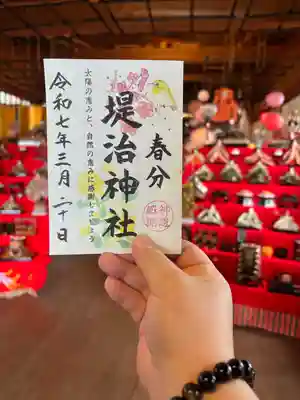 春分
堤治神社
太陽の恵みと、自然の恵みに感謝しましょう
令和七年三月二十日